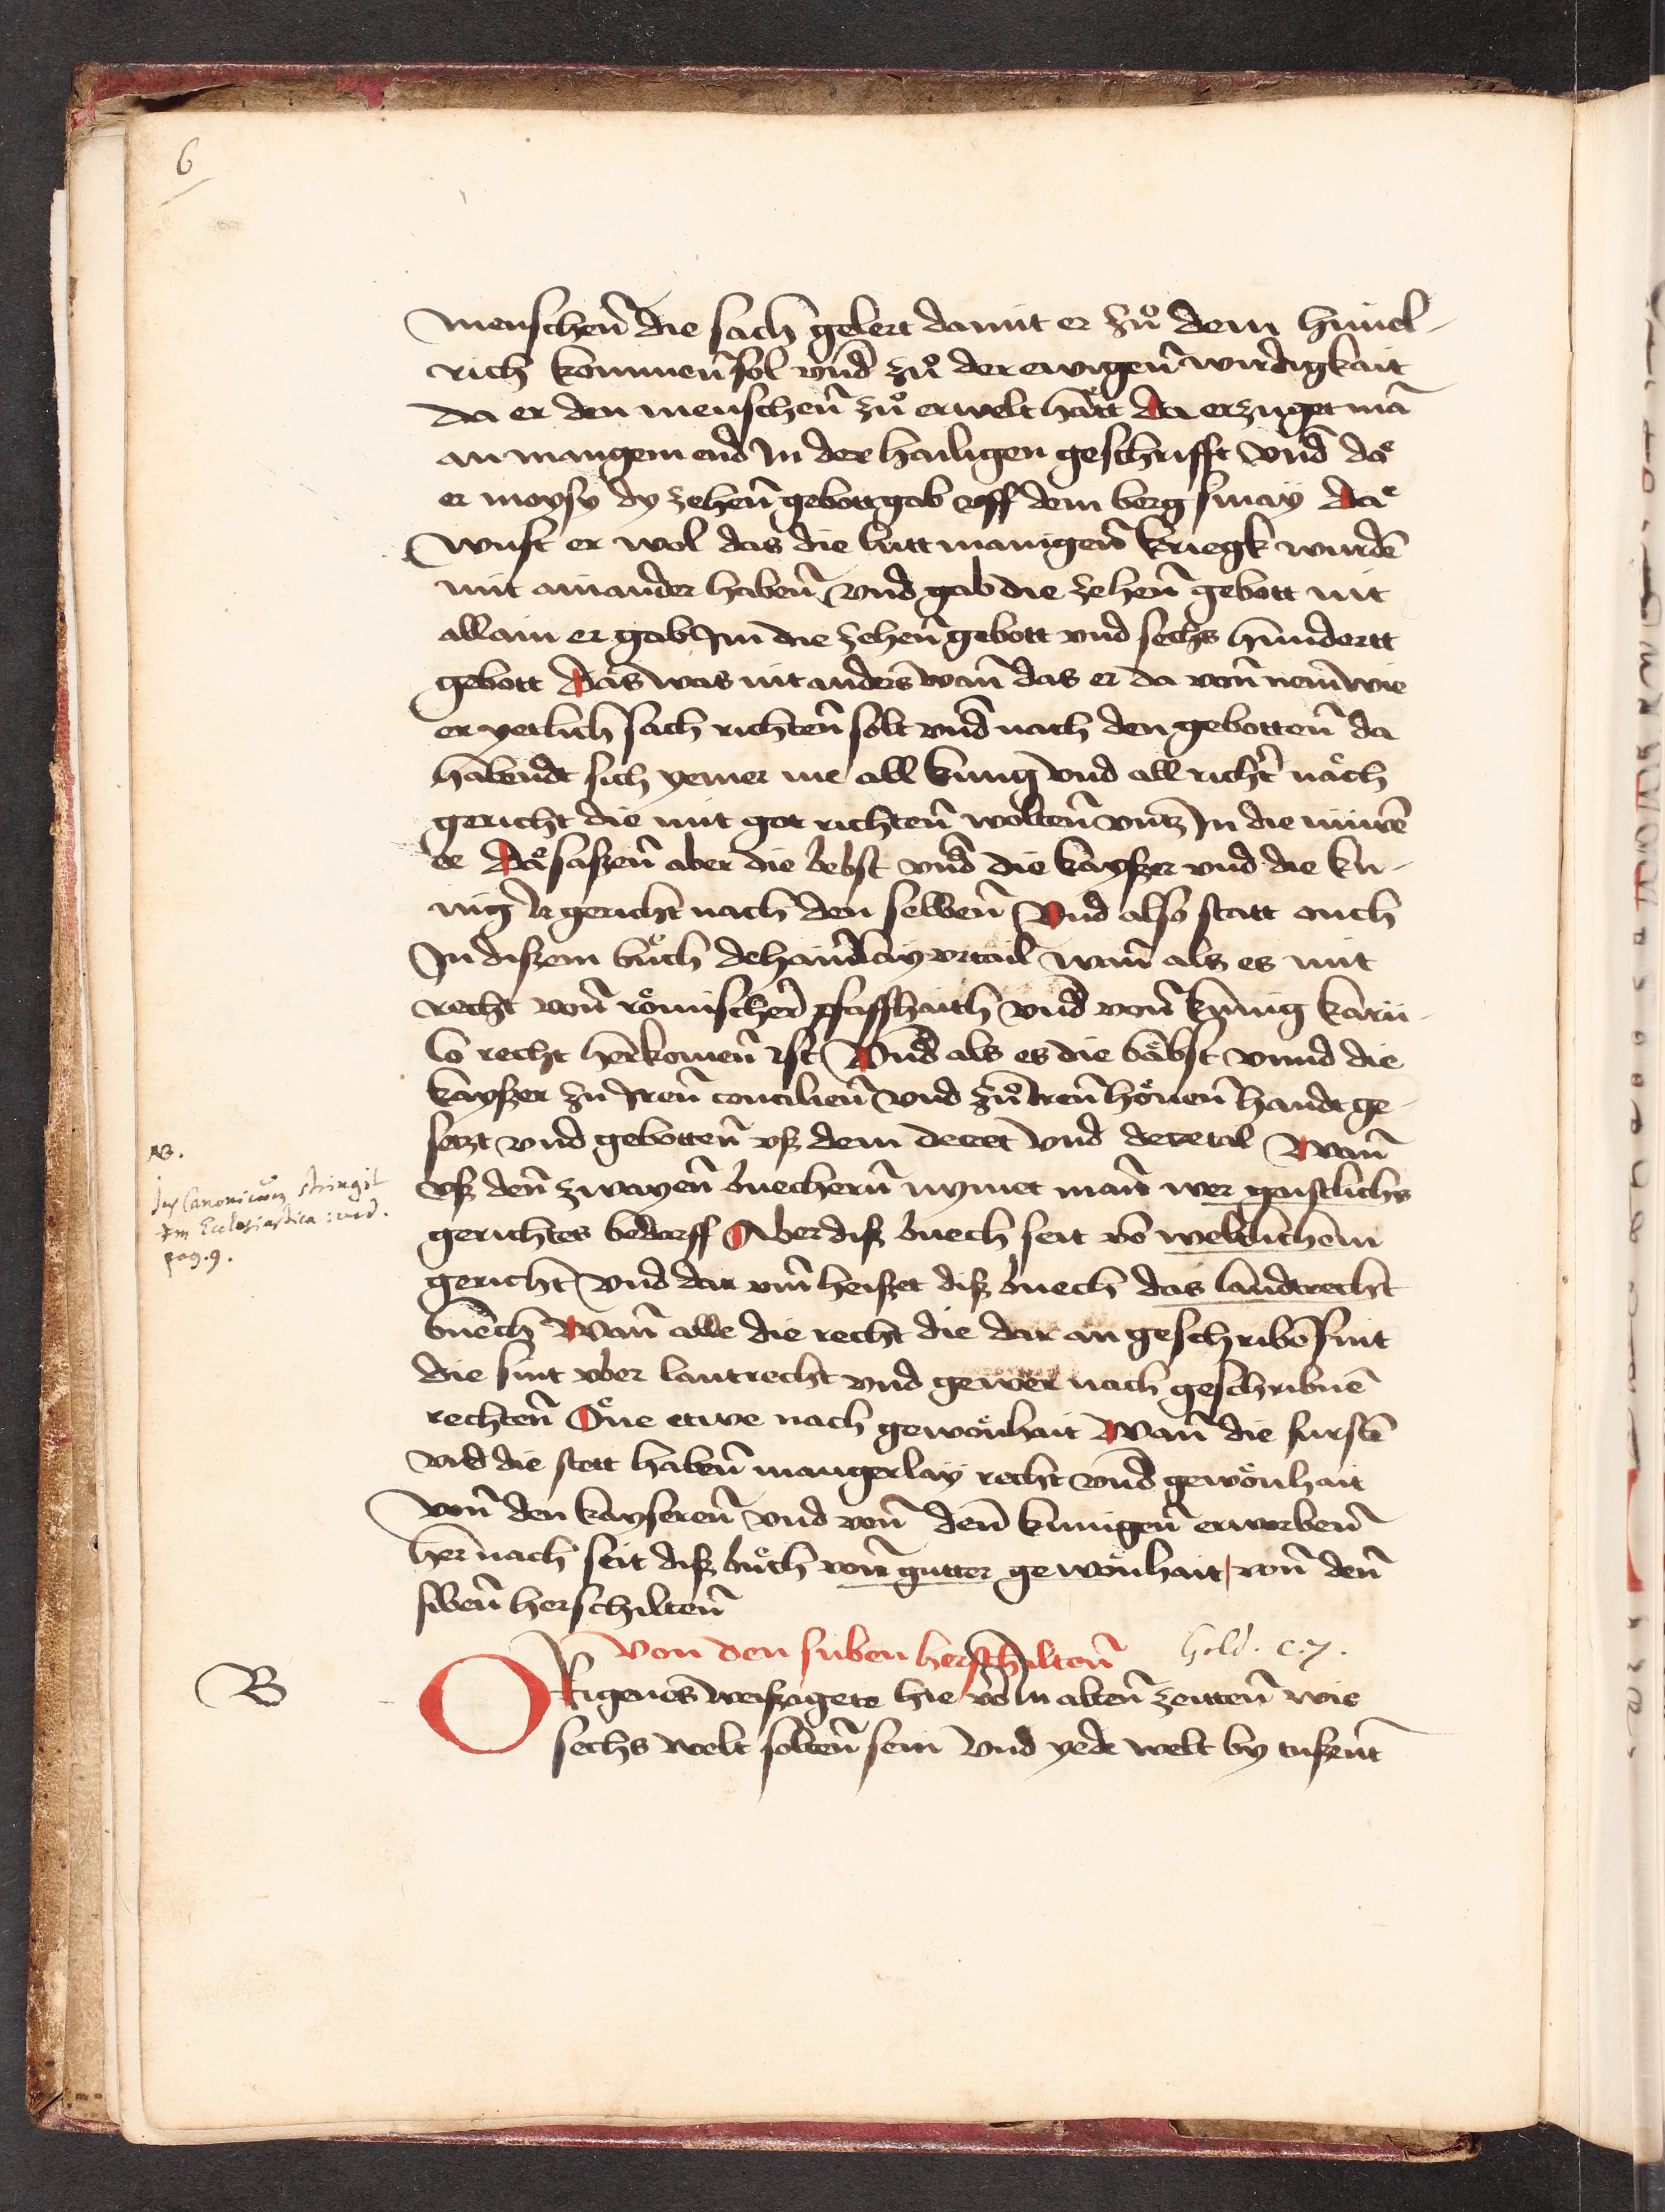 6
menschen̄ die sach gelert damit er zuͦ dem himel-
rich kommen̄ sol vnd zuͦ der ewigen̄ wirdigkait
da er den menschen̄ zuͦ erwelt haͤtt Da erzuget mā
an mangem end In der hailigen geschrifft vnd daͤ
er moysy dy zehen̄ gebott gab vff dem berg sinaÿ Daͤ
wust er wol das die lutt manigen̄ kriegk wurdē
mit ainander haben̄ vnd gab die zehen̄ gebott nit
allain er gab Im die zehen̄ gebott vnd sechs hundertt
gebott Das was nit anders wan̄ das er da von̄ nem̄ wie
er yetlich sach richten̄ solt vnd nach den gebotten̄ da
habendt sich yemer me all kung vnd all richtr̄ naͤch
gericht die mit got richten̄ wolten̄ vntz In die nüwē
ee Daͤ saßen̄ aber die bebst vnd die kayßer vnd die ku-
nig Ir gericht nach den selben̄ Vnd also statt auch
In dißem buͤch dehainerlay vrtail wan̄ als es mit
recht von̄ roͤmischer pfaffhaith vnd von̄ kunig karu-
lo recht herkomen̄ ist Vnd als es die baͤbst vnnd die
kayßer zu Iren̄ concilien̄ vnd zuͦ Iren̄ hoͤuen̄ handt ge-
setzt vnd gebotten̄ vß dem decret vnd decretal Wan̄
vß den̄ zwayen̄ buechern̄ nymet man̄ wer gaistlichs
gerichtes bedorff Aber diß buech seit vō weltlichem
gericht vnd dar vm̄ heißet diß buech das landtrecht
buech Wan̄ alle die recht die dar an geschribē sint
die sint vber lantrecht vnd gewer nach geschribnē
rechten̄ Oͤne etwe nach gewoͤnhait Wan̄ die furstē
vnd die stett haben̄ mangerlaÿ recht vnd gewoͤnhait
von̄ den kayseren̄ vnd von̄ den̄ kunigen̄ erworben̄
her nach seit diß buͤch von̄ gutter gewoͤnhait von̄ den̄
siben̄ herschilten̄
Von den suben herschilten̄
Gold. c. 7.
ORigenes weißagete hie vor In alten̄ zeitten̄ wie
sechs welt solten̄ sein vnd yede welt by tußent
NB.
Jus Canonicum stringit
tm Ecclesiastica: vid.
pag. 9.
B